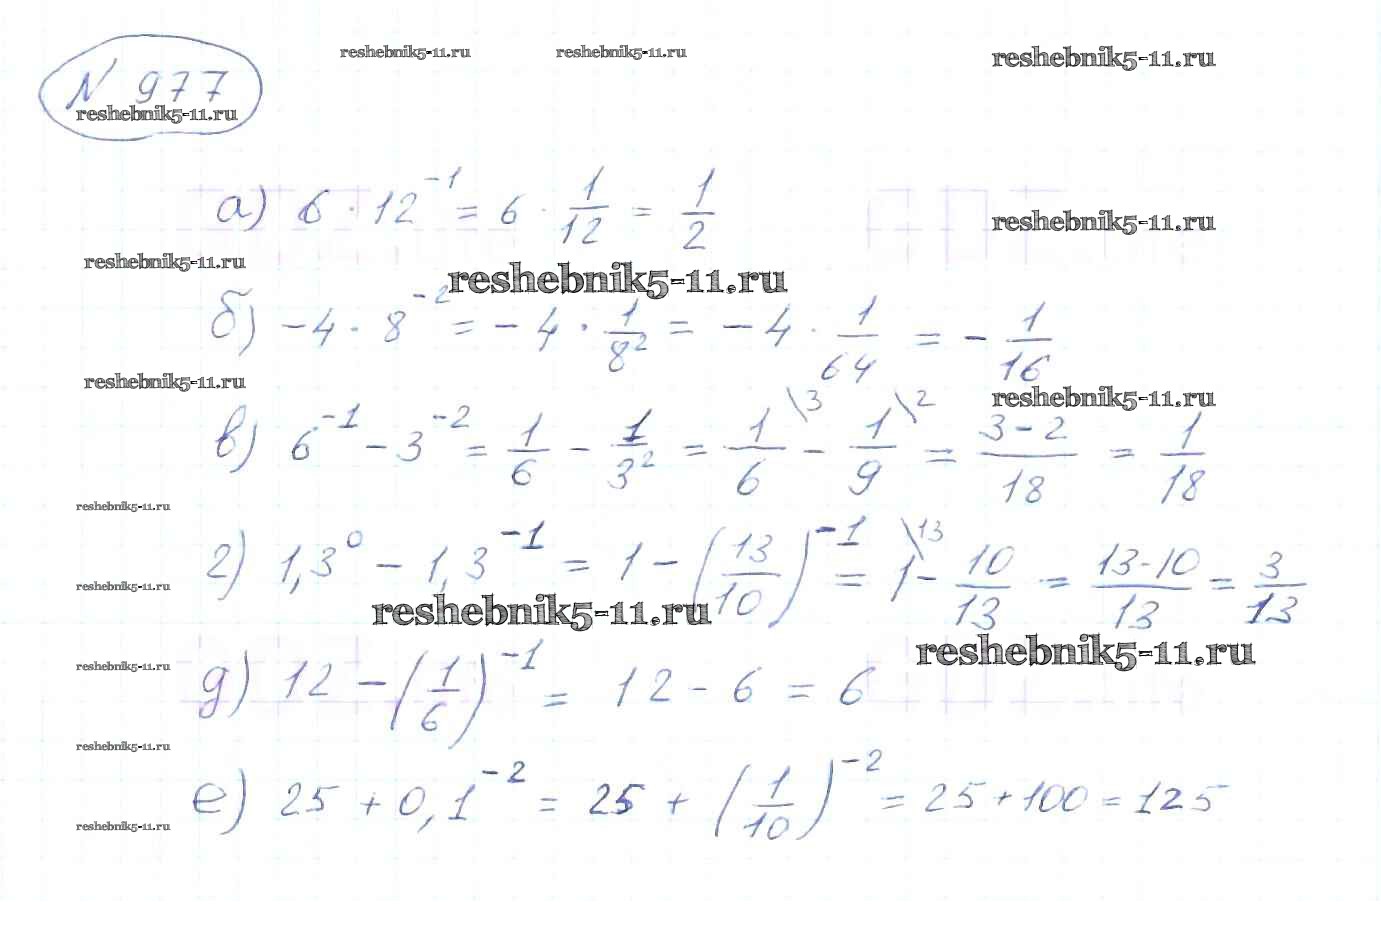 reshebnik5-11.ru reshebnik5-11.ru reshebnik5-11.ru
N 977
reshebnik5-11.ru
а) 6 · 12⁻¹ = 6 · 1/12 = 1/2
reshebnik5-11.ru
reshebnik5-11.ru reshebnik5-11.ru
б) -4 · 8⁻² = -4 · 1/8² = -4 · 1/64 = - 1/16
reshebnik5-11.ru reshebnik5-11.ru
в) 6⁻¹ - 3⁻² = 1/6 - 1/3² = 1/6 \3 - 1/9 \2 = (3-2)/18 = 1/18
reshebnik5-11.ru
г) 1,3⁰ - 1,3⁻¹ = 1 - (13/10)⁻¹ = 1 \13 - 10/13 = (13-10)/13 = 3/13
reshebnik5-11.ru
reshebnik5-11.ru
reshebnik5-11.ru reshebnik5-11.ru
д) 12 - (1/6)⁻¹ = 12 - 6 = 6
reshebnik5-11.ru
е) 25 + 0,1⁻² = 25 + (1/10)⁻² = 25 + 100 = 125
reshebnik5-11.ru